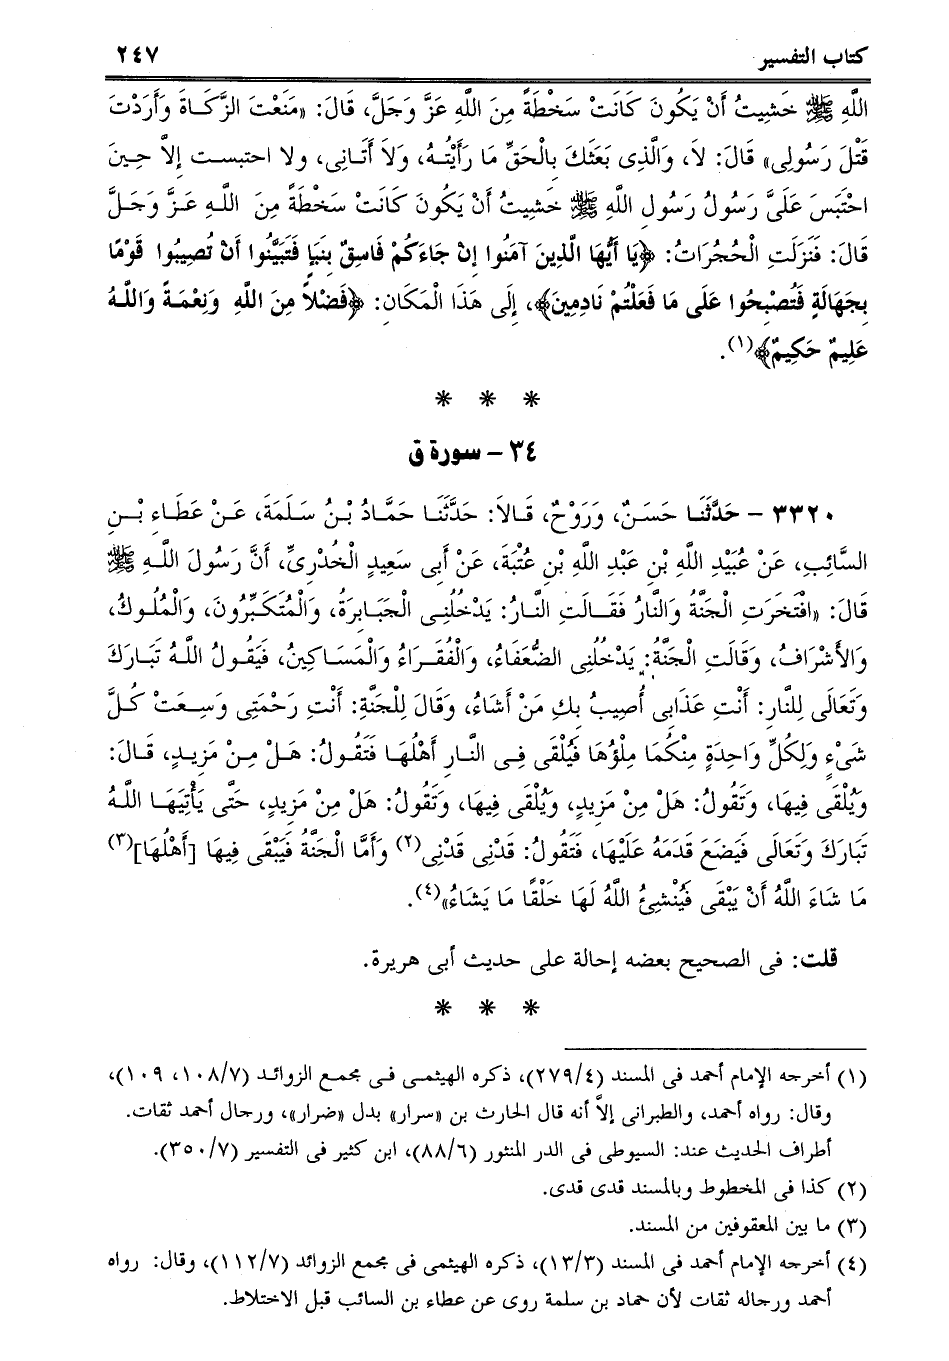 كتاب التفسير ٢٤٧
اللَّهِ ﷺ خَشِيتُ أَنْ يَكُونَ كَانَتْ سَخْطَةً مِنَ اللَّهِ عَزَّ وَجَلَّ، قَالَ: «مَنَعْتَ الزَّكَاةَ وَأَرَدْتَ
قَتْلَ رَسُولِى» قَالَ: لاَ، وَالَّذِى بَعَثَكَ بِالْحَقِّ مَا رَأَيْتُهُ، وَلاَ أَتَانِى، ولا احتبست إلاَّ حِينَ
احْتَبَسَ عَلَىَّ رَسُولُ رَسُولِ اللَّهِ ﷺ خَشِيتُ أَنْ يَكُونَ كَانَتْ سَخْطَةً مِنَ اللَّهِ عَزَّ وَجَلَّ
قَالَ: فَنَزَلَتِ الْحُجُرَاتُ: ﴿يَا أَيُّهَا الَّذِينَ آمَنُوا إِنْ جَاءَكُمْ فَاسِقٌ بِنَبَإٍ فَتَبَيَّنُوا أَنْ تُصِيبُوا قَوْمًا
بِجَهَالَةٍ فَتُصْبِحُوا عَلَى مَا فَعَلْتُمْ نَادِمِينَ﴾، إِلَى هَذَا الْمَكَانِ: ﴿فَضْلاً مِنَ اللَّهِ وَنِعْمَةً وَاللَّهُ
عَلِيمٌ حَكِيمٌ﴾(١).
* * *
٣٤ - سورة ق
٣٣٢٠ - حَدَّثَنَا حَسَنٌ، وَرَوْحٌ، قَالاَ: حَدَّثَنَا حَمَّادُ بْنُ سَلَمَةَ، عَنْ عَطَاءِ بْنِ
السَّائِبِ، عَنْ عُبَيْدِ اللَّهِ بْنِ عَبْدِ اللَّهِ بْنِ عُتْبَةَ، عَنْ أَبِى سَعِيدٍ الْخُدْرِىِّ، أَنَّ رَسُولَ اللَّهِ ﷺ
قَالَ: «افْتَخَرَتِ الْجَنَّةُ وَالنَّارُ فَقَالَتِ النَّارُ: يَدْخُلُنِى الْجَبَابِرَةُ، وَالْمُتَكَبِّرُونَ، وَالْمُلُوكُ،
وَالأَشْرَافُ، وَقَالَتِ الْجَنَّةُ: يَدْخُلُنِى الضُّعَفَاءُ، وَالْفُقَرَاءُ وَالْمَسَاكِينُ، فَيَقُولُ اللَّهُ تَبَارَكَ
وَتَعَالَى لِلنَّارِ: أَنْتِ عَذَابِى أُصِيبُ بِكِ مَنْ أَشَاءُ، وَقَالَ لِلْجَنَّةِ: أَنْتِ رَحْمَتِى وَسِعَتْ كُلَّ
شَىْءٍ وَلِكُلِّ وَاحِدَةٍ مِنْكُمَا مِلْؤُهَا فَيُلْقَى فِى النَّارِ أَهْلُهَا فَتَقُولُ: هَلْ مِنْ مَزِيدٍ، قَالَ:
وَيُلْقَى فِيهَا، وَتَقُولُ: هَلْ مِنْ مَزِيدٍ، وَيُلْقَى فِيهَا، وَتَقُولُ: هَلْ مِنْ مَزِيدٍ، حَتَّى يَأْتِيَهَا اللَّهُ
تَبَارَكَ وَتَعَالَى فَيَضَعَ قَدَمَهُ عَلَيْهَا، فَتَقُولُ: قَدْنِى قَدْنِى(٢) وَأَمَّا الْجَنَّةُ فَيَبْقَى فِيهَا [أَهْلُهَا](٣)
مَا شَاءَ اللَّهُ أَنْ يَبْقَى فَيُنْشِئُ اللَّهُ لَهَا خَلْقًا مَا يَشَاءُ»(٤).
قلت: فى الصحيح بعضه إحالة على حديث أبى هريرة.
* * *
(١) أخرجه الإمام أحمد فى المسند (٢٧٩/٤)، ذكره الهيثمى فى مجمع الزوائد (١٠٨/٧، ١٠٩)،
وقال: رواه أحمد، والطبرانى إلاَّ أنه قال الحارث بن «سرار» بدل «ضرار»، ورجال أحمد ثقات.
أطراف الحديث عند: السيوطى فى الدر المنثور (٨٨/٦)، ابن كثير فى التفسير (٣٥٠/٧).
(٢) كذا فى المخطوط وبالمسند قدى قدى.
(٣) ما بين المعقوفين من المسند.
(٤) أخرجه الإمام أحمد فى المسند (١٣/٣)، ذكره الهيثمى فى مجمع الزوائد (١١٢/٧)، وقال: رواه
أحمد ورجاله ثقات لأن حماد بن سلمة روى عن عطاء بن السائب قبل الاختلاط.